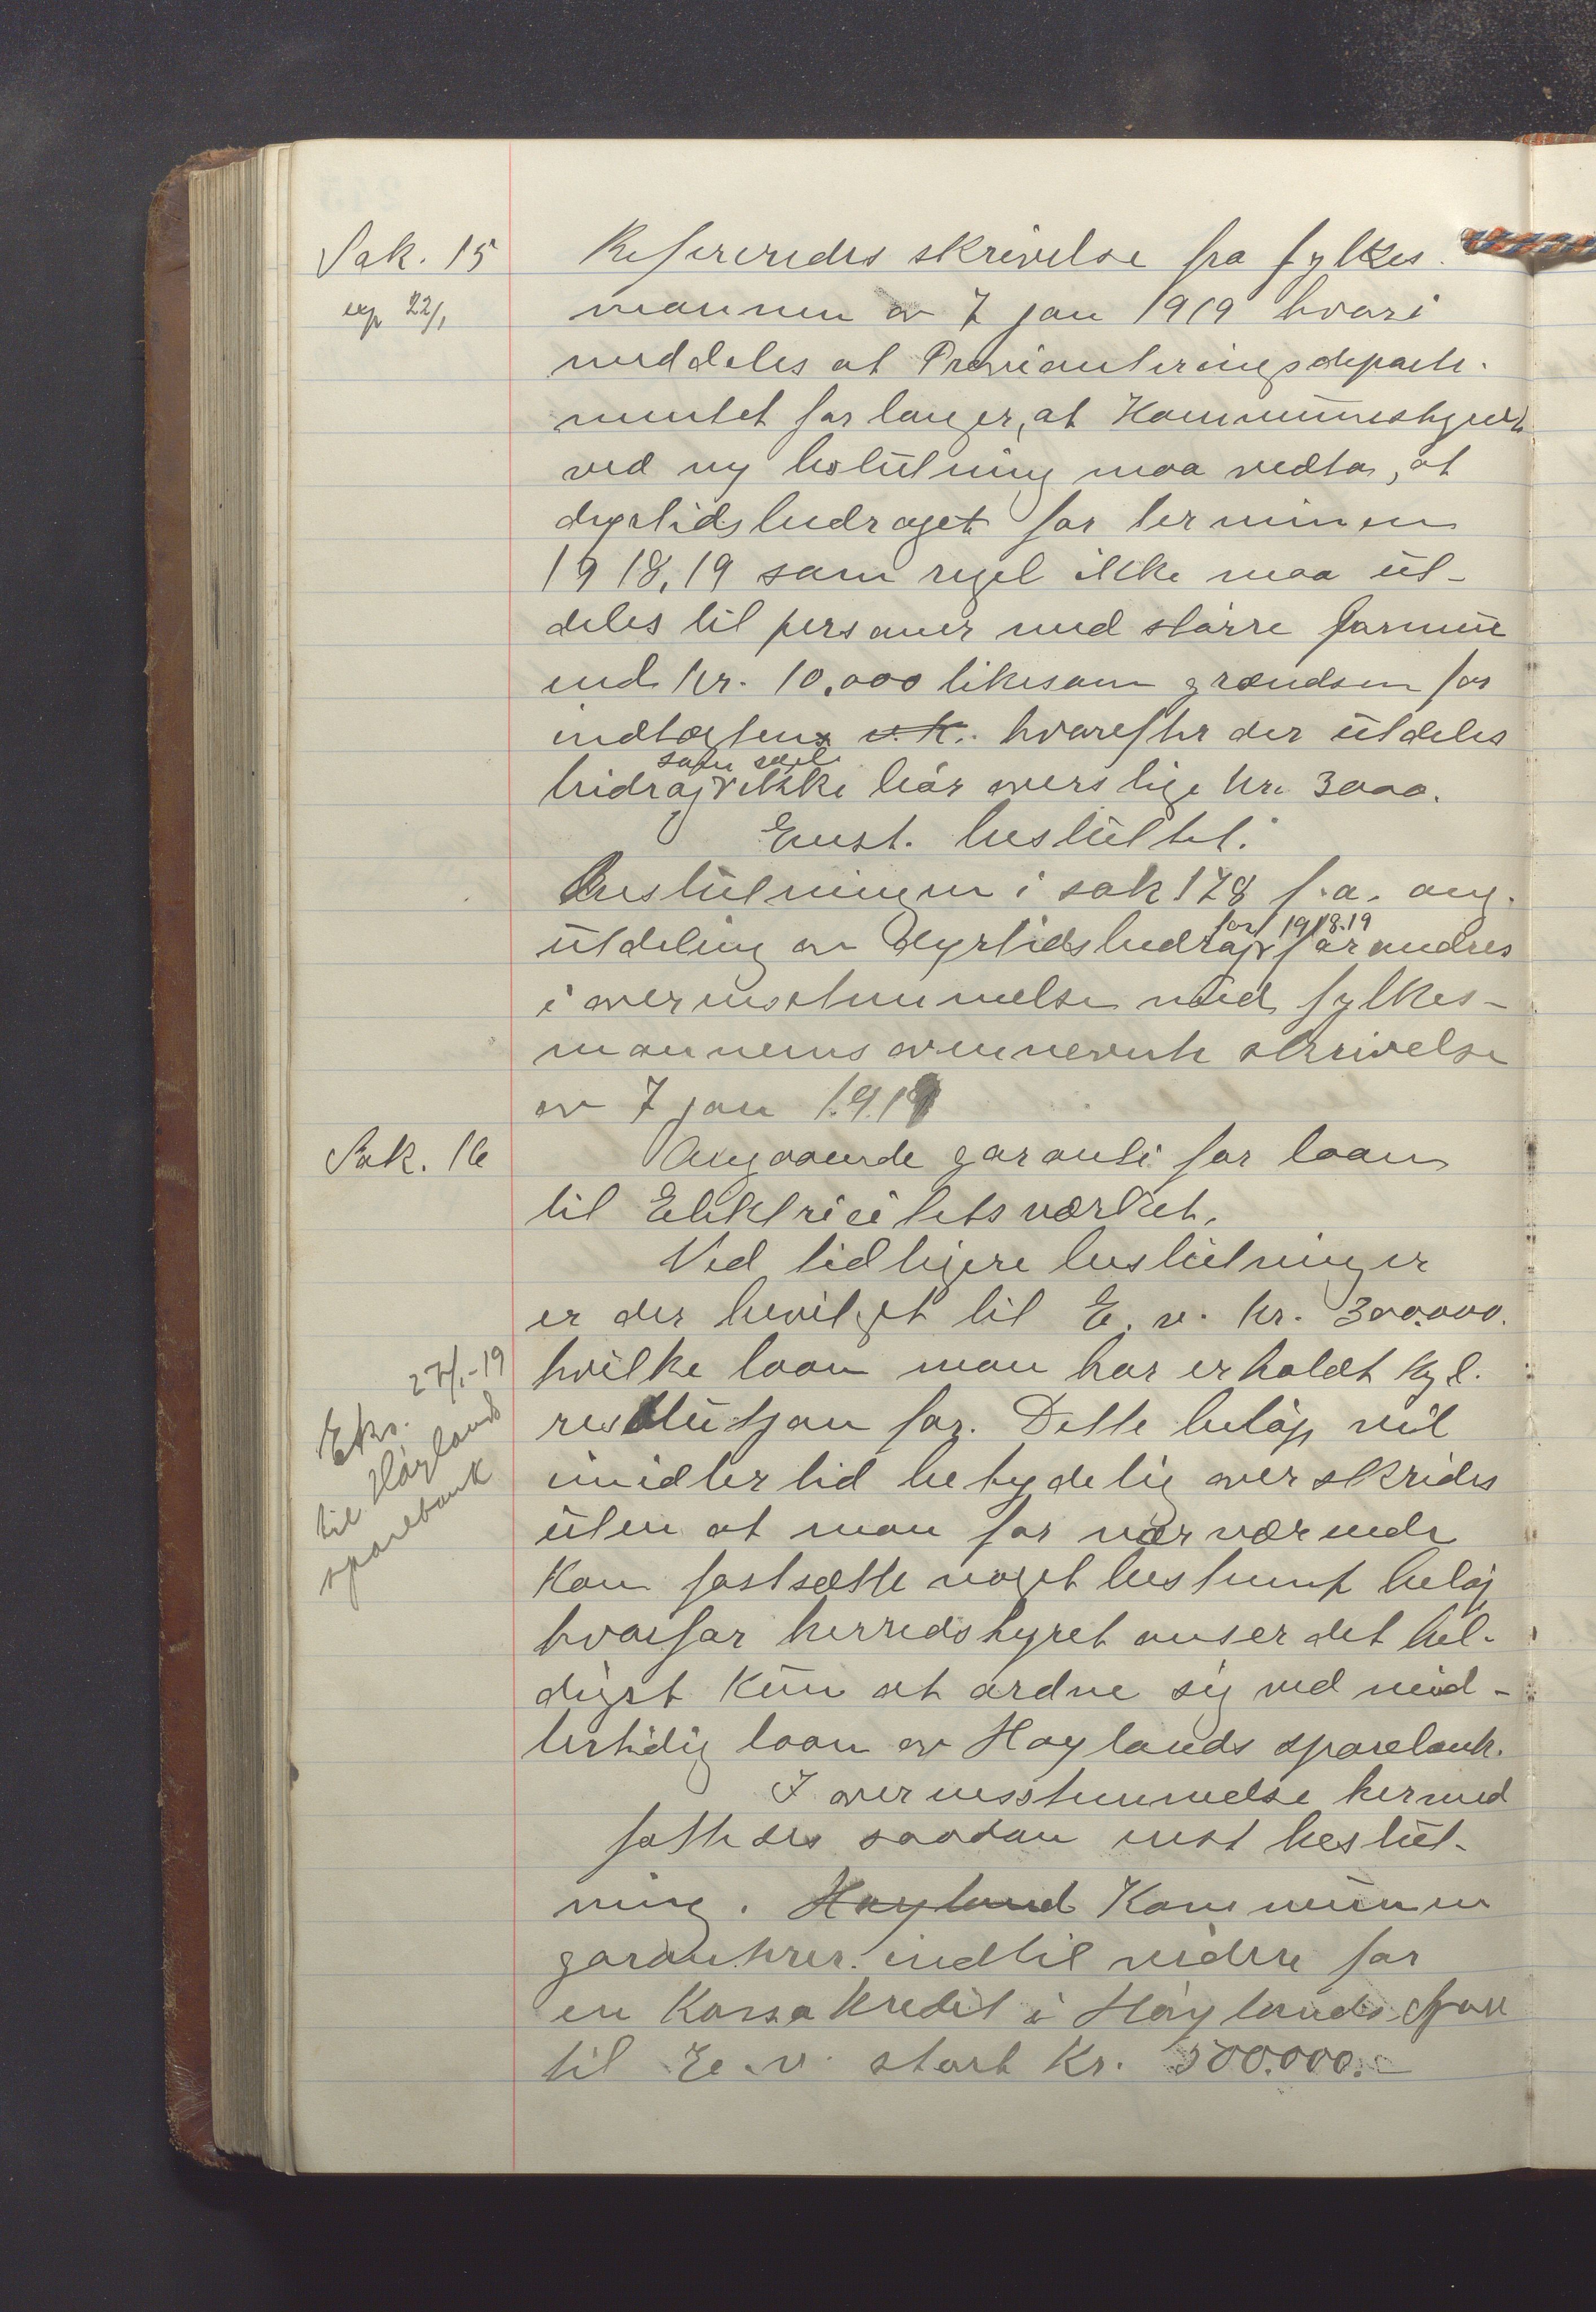 Sak. 15
exp 22/1
Refereredes skrivelse fra fylkes-
mannen av 7 jan 1919 hvori
meddeles at Provianteringsdeparte-
mentet forlanger, at Kommunestyret
ved ny beslutning maa vedta, at
dyrtidsbidraget for terminen
1918,19 som regel ikke maa ut-
deles til personer med større formue
end kr. 10.000 likesom grændsen for
indtægten v.k. hvorefter der utdeles
som regel
bidrag ikke bør overstige kr. 3000.
Enst. besluttet:
Beslutningen i sak 178 f.a. ang.
for 1918.19
utdeling av dyrtidsbidrag forandres
i overensstemmelse med fylkes-
mannens ovennevnte skrivelse
av 7 jan 1919
Sak. 16
Angaaende garanti for laan
til Elektricitetsværket.
Ved tidligere beslutninger
er der bevilget til E. v. kr. 300.000.
hvilke laan man har erholdt kgl.
resolutjon for. Dette beløp vil
imidlertid betydelig overskrides
uten at man for nærværende
kan fastsætte noget bestemt beløp
hvorfor herredstyret anser det hel-
digst kun at ordne sig ved mid-
lertidig laan av Høylands sparebank.
27/1-19
Eks.
til Høyland
sparebank
I overensstemmelse hermed
fattedes saadan enst beslut-
ning. Høyland Kommunen
garanterer indtil videre for
en Kassakredit i Høylands spare
til E.v. stort Kr. 500.000.-